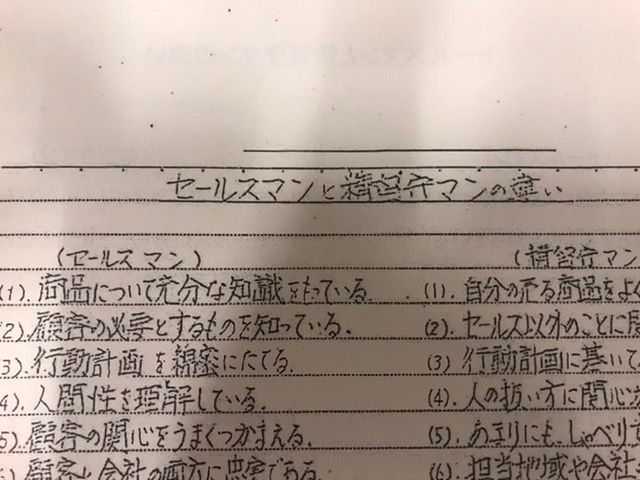 セールスマンと積留守マンの違い
(セールスマン)
(1). 商品について充分な知識をもっている.
(2). 顧客の必要とするものを知っている.
(3). 行動計画を綿密にたてる.
4). 人間性を理解している.
5). 顧客の関心をうまくつかまえる.
顧客と会社の両方に忠実である.
(積留守マン)
(1). 自分の売る商品をよく
(2). セールス以外のことに
(3) 行動計画に基いて
(4). 人の扱い方に関心
(5). あまりにもしゃべりす
(6). 担当地域や会社